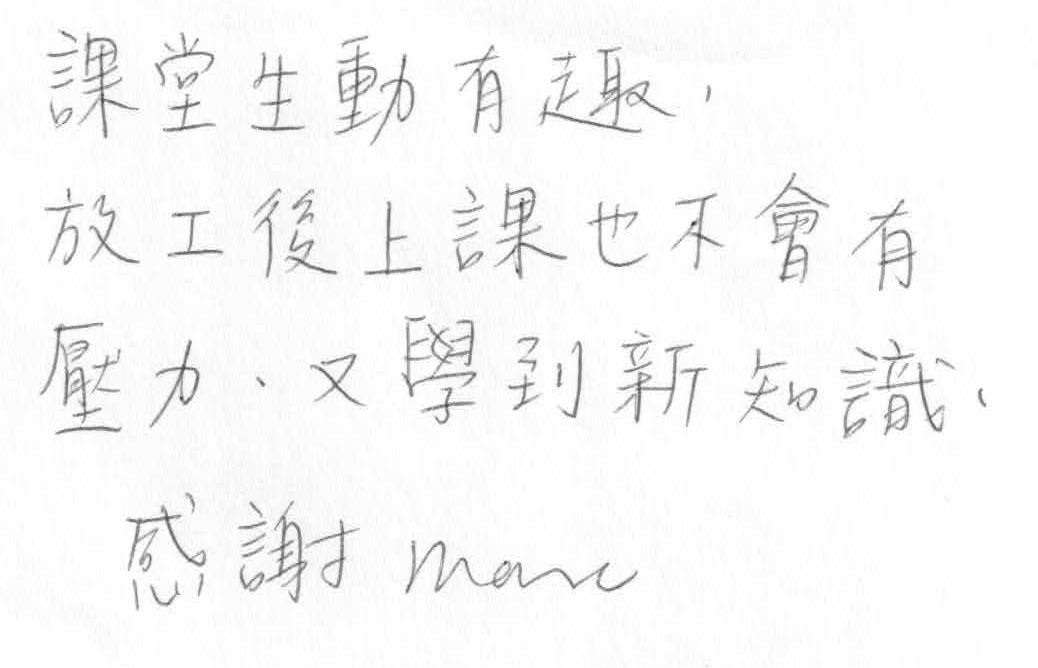 課堂生動有趣，
放工後上課也不會有
壓力、又學到新知識、
感謝 Marc